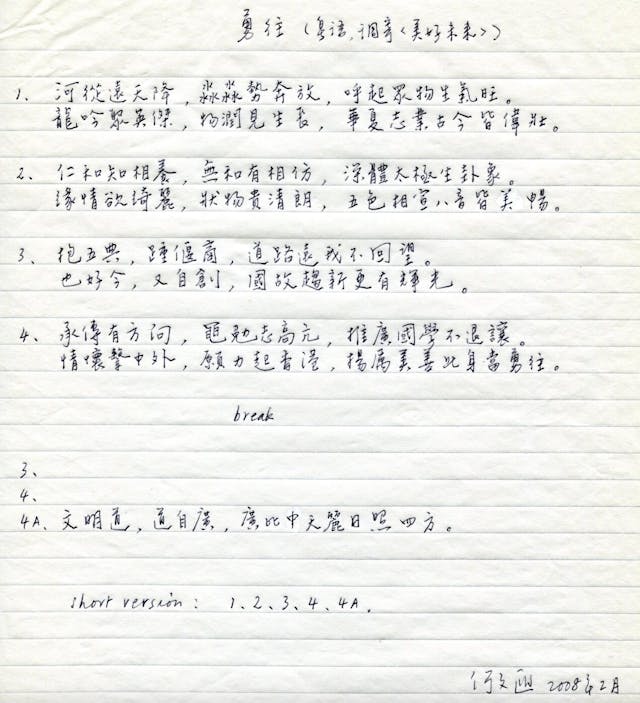 勇往 (粵語,調寄<美好未來>)
1、河從遠天降,淼淼勢奔放,呼起眾物生氣旺。
龍吟聚英傑,物潤見生長,華夏志業古今皆偉壯。
2、仁和知相養,無和有相仿,深體太極生卦象。
緣情欲綺麗,狀物貴清朗,五色相宣八音皆美暢。
3、抱五典,踵偃商,道路遠我不回望。
也好今,又自創,國故趨新更有輝光。
4、承傳有方向,黽勉志高亢,推廣國學不退讓。
情懷擎中外,願力起香港,揚厲美善此身當勇往。
break
3、
4、
4A、文明道,道自廣,廣比中天麗日照四方。
short version : 1、2、3、4、4A.
何文匯 2008年2月